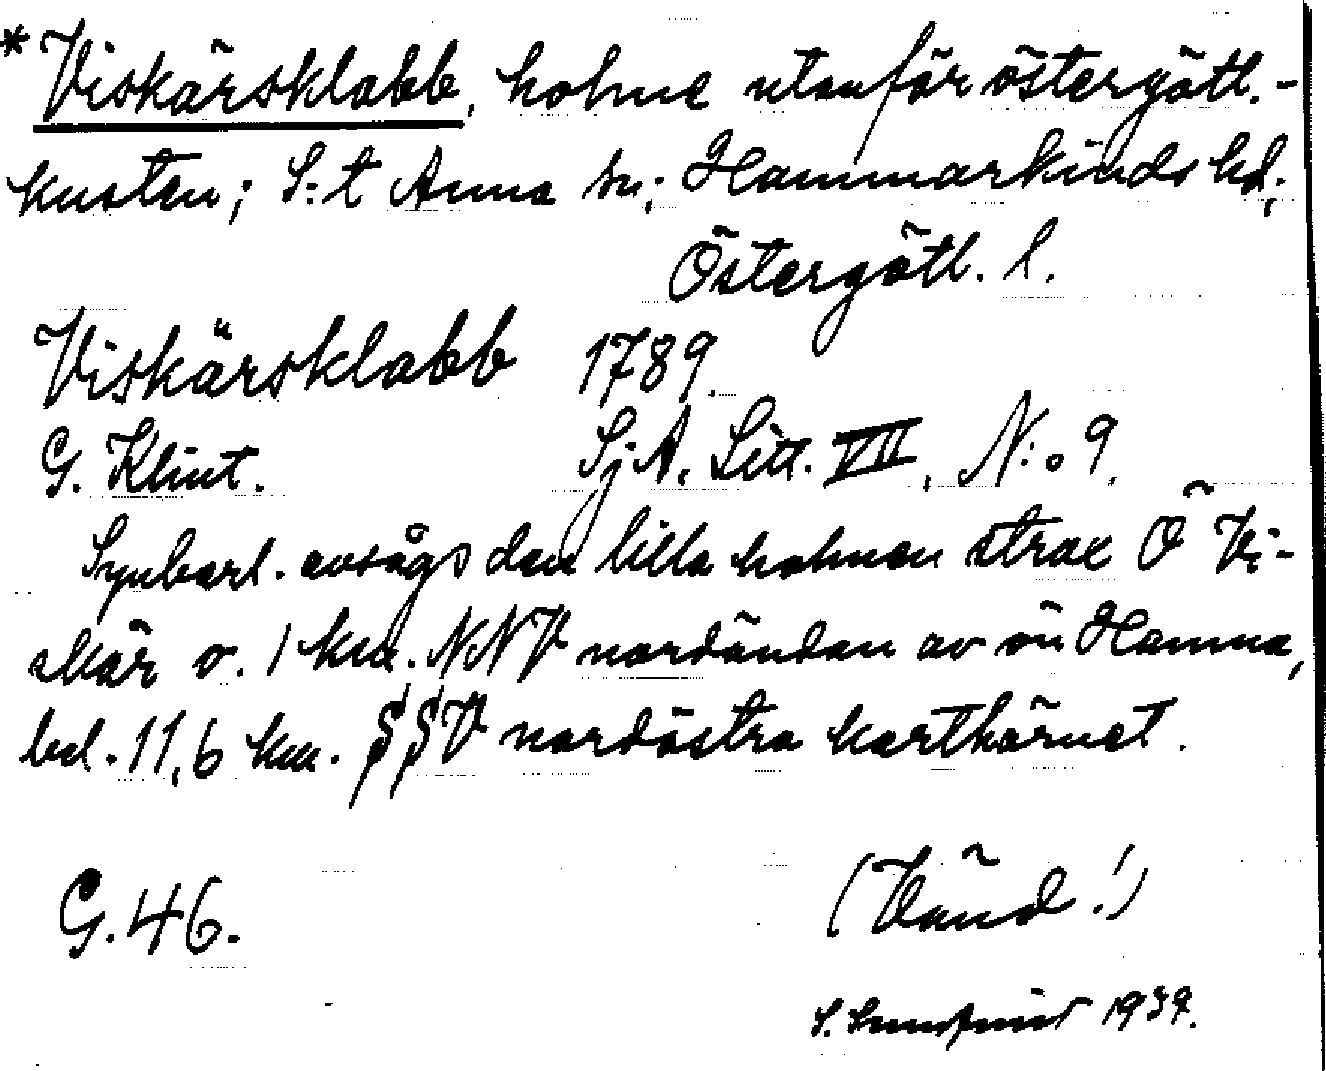 *Viskärsklabb, holme utanför östergötl.-
kusten; S:t Anna sn; Hammarkinds hd;
Östergötl. l.
Viskärsklabb 1789.
G. Klint. SjA. Litt. VII, N:o 9.
Synbarl. avsågs den lilla holmen strax Ö Vi-
skär o. 1 km. NNV nordändan av ön Hamna,
bel. 11,6 km. SSV nordöstra karthörnet.
G. 46. (Vänd!)
S. 1939.